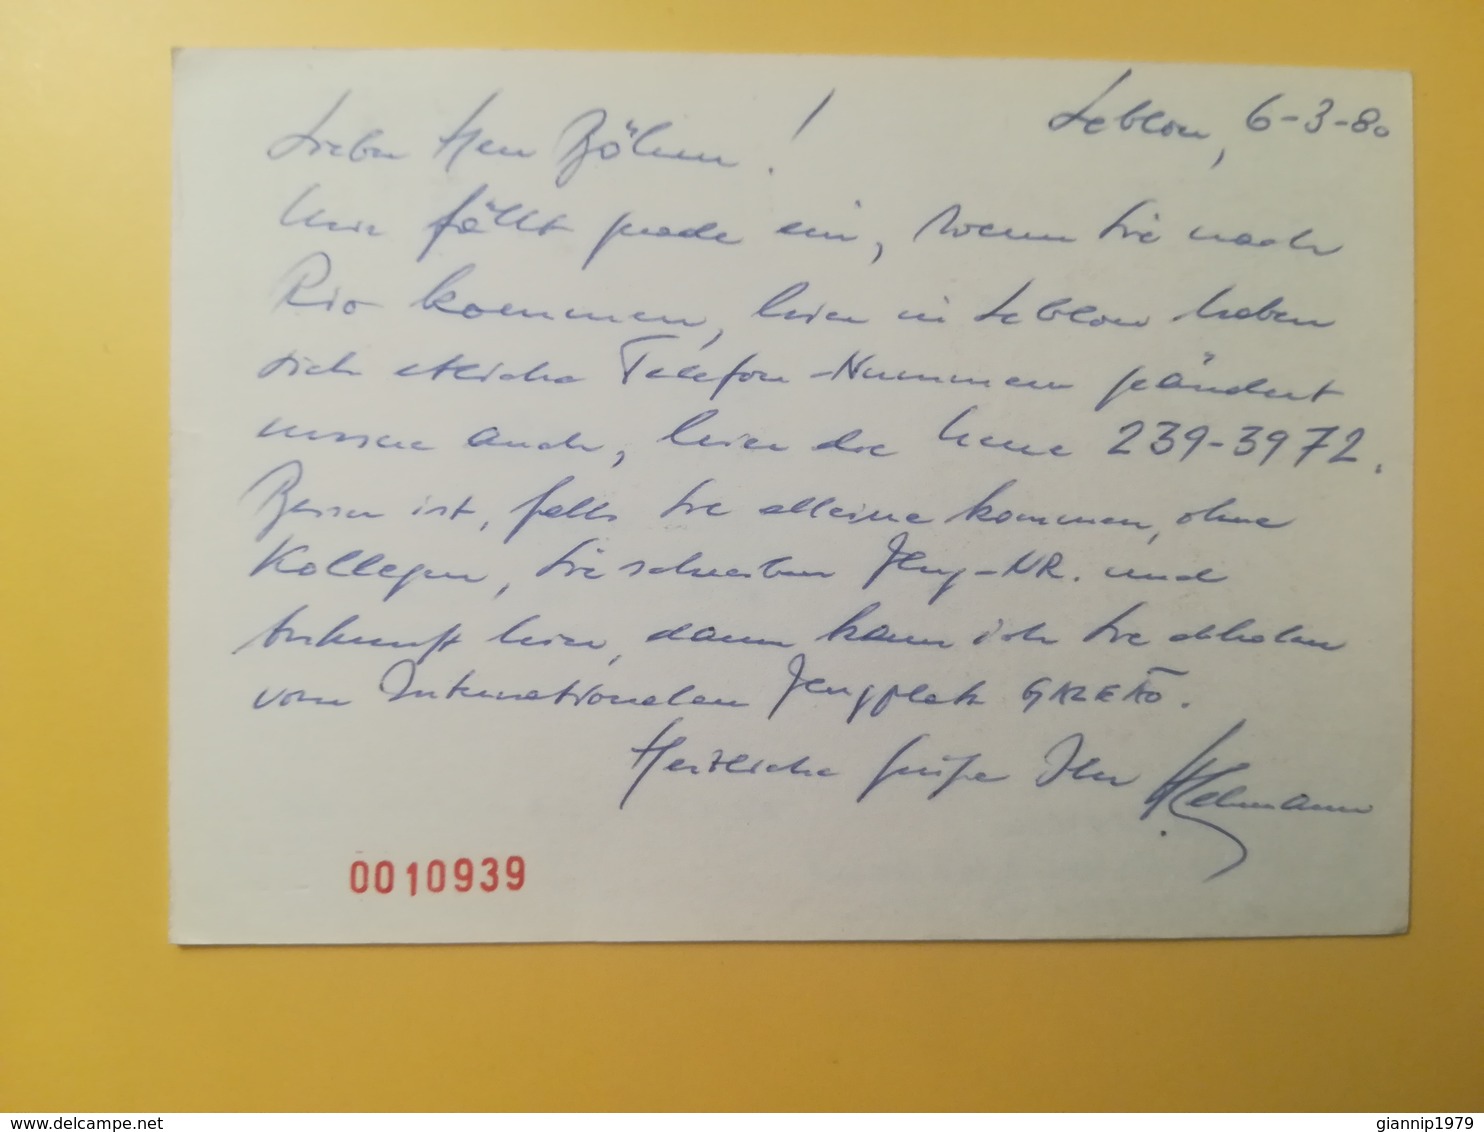 Leblon, 6-3-80
Lieber Herr Böhm!
Mir fällt grade ein, wenn Sie nach
Rio kommen, hier in Leblon haben
sich etliche Telefon-Nummern geändert
unsere auch, hier die neue 239-3972.
Besser ist, falls Sie alleine kommen, ohne
Kollegen, Sie schreiben Flug-NR. und
Ankunft hier, dann kann ich Sie abholen
vom Internationalen Flugplatz GALEÃO.
Herzliche Grüße Ihr
0010939
delcampe.net
giannip1979